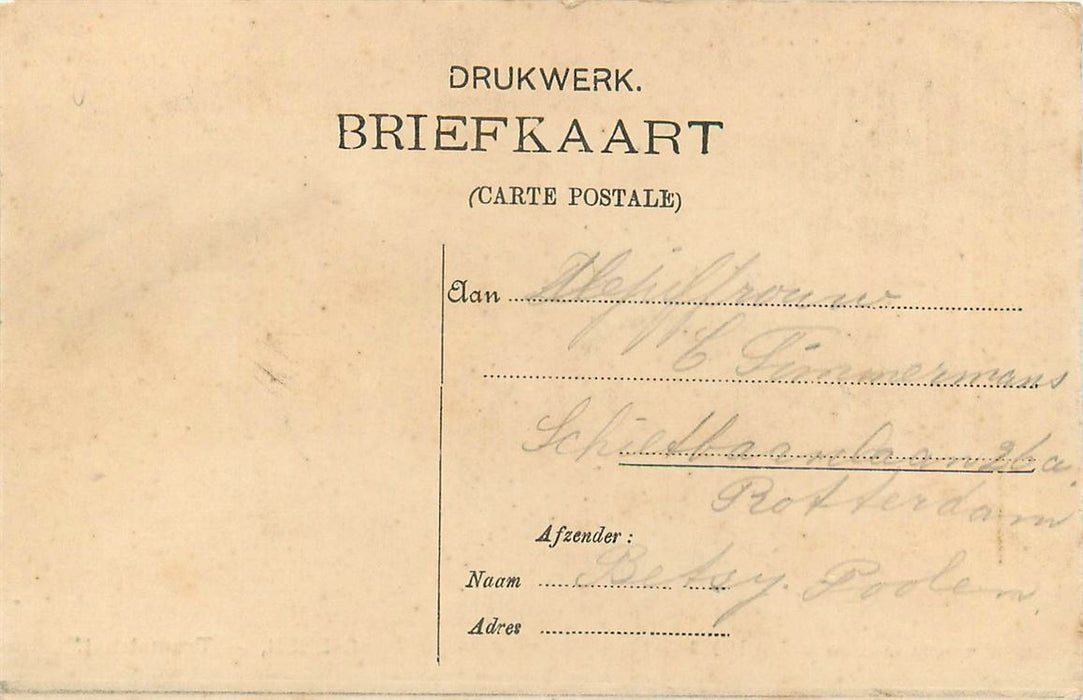 DRUKWERK.
BRIEFKAART
(CARTE POSTALE)
Aan Mejuffrouw
C Timmermans
Schietbaanlaan 26a.
Rotterdam
Afzender :
Naam Betsy. Poolen.
Adres